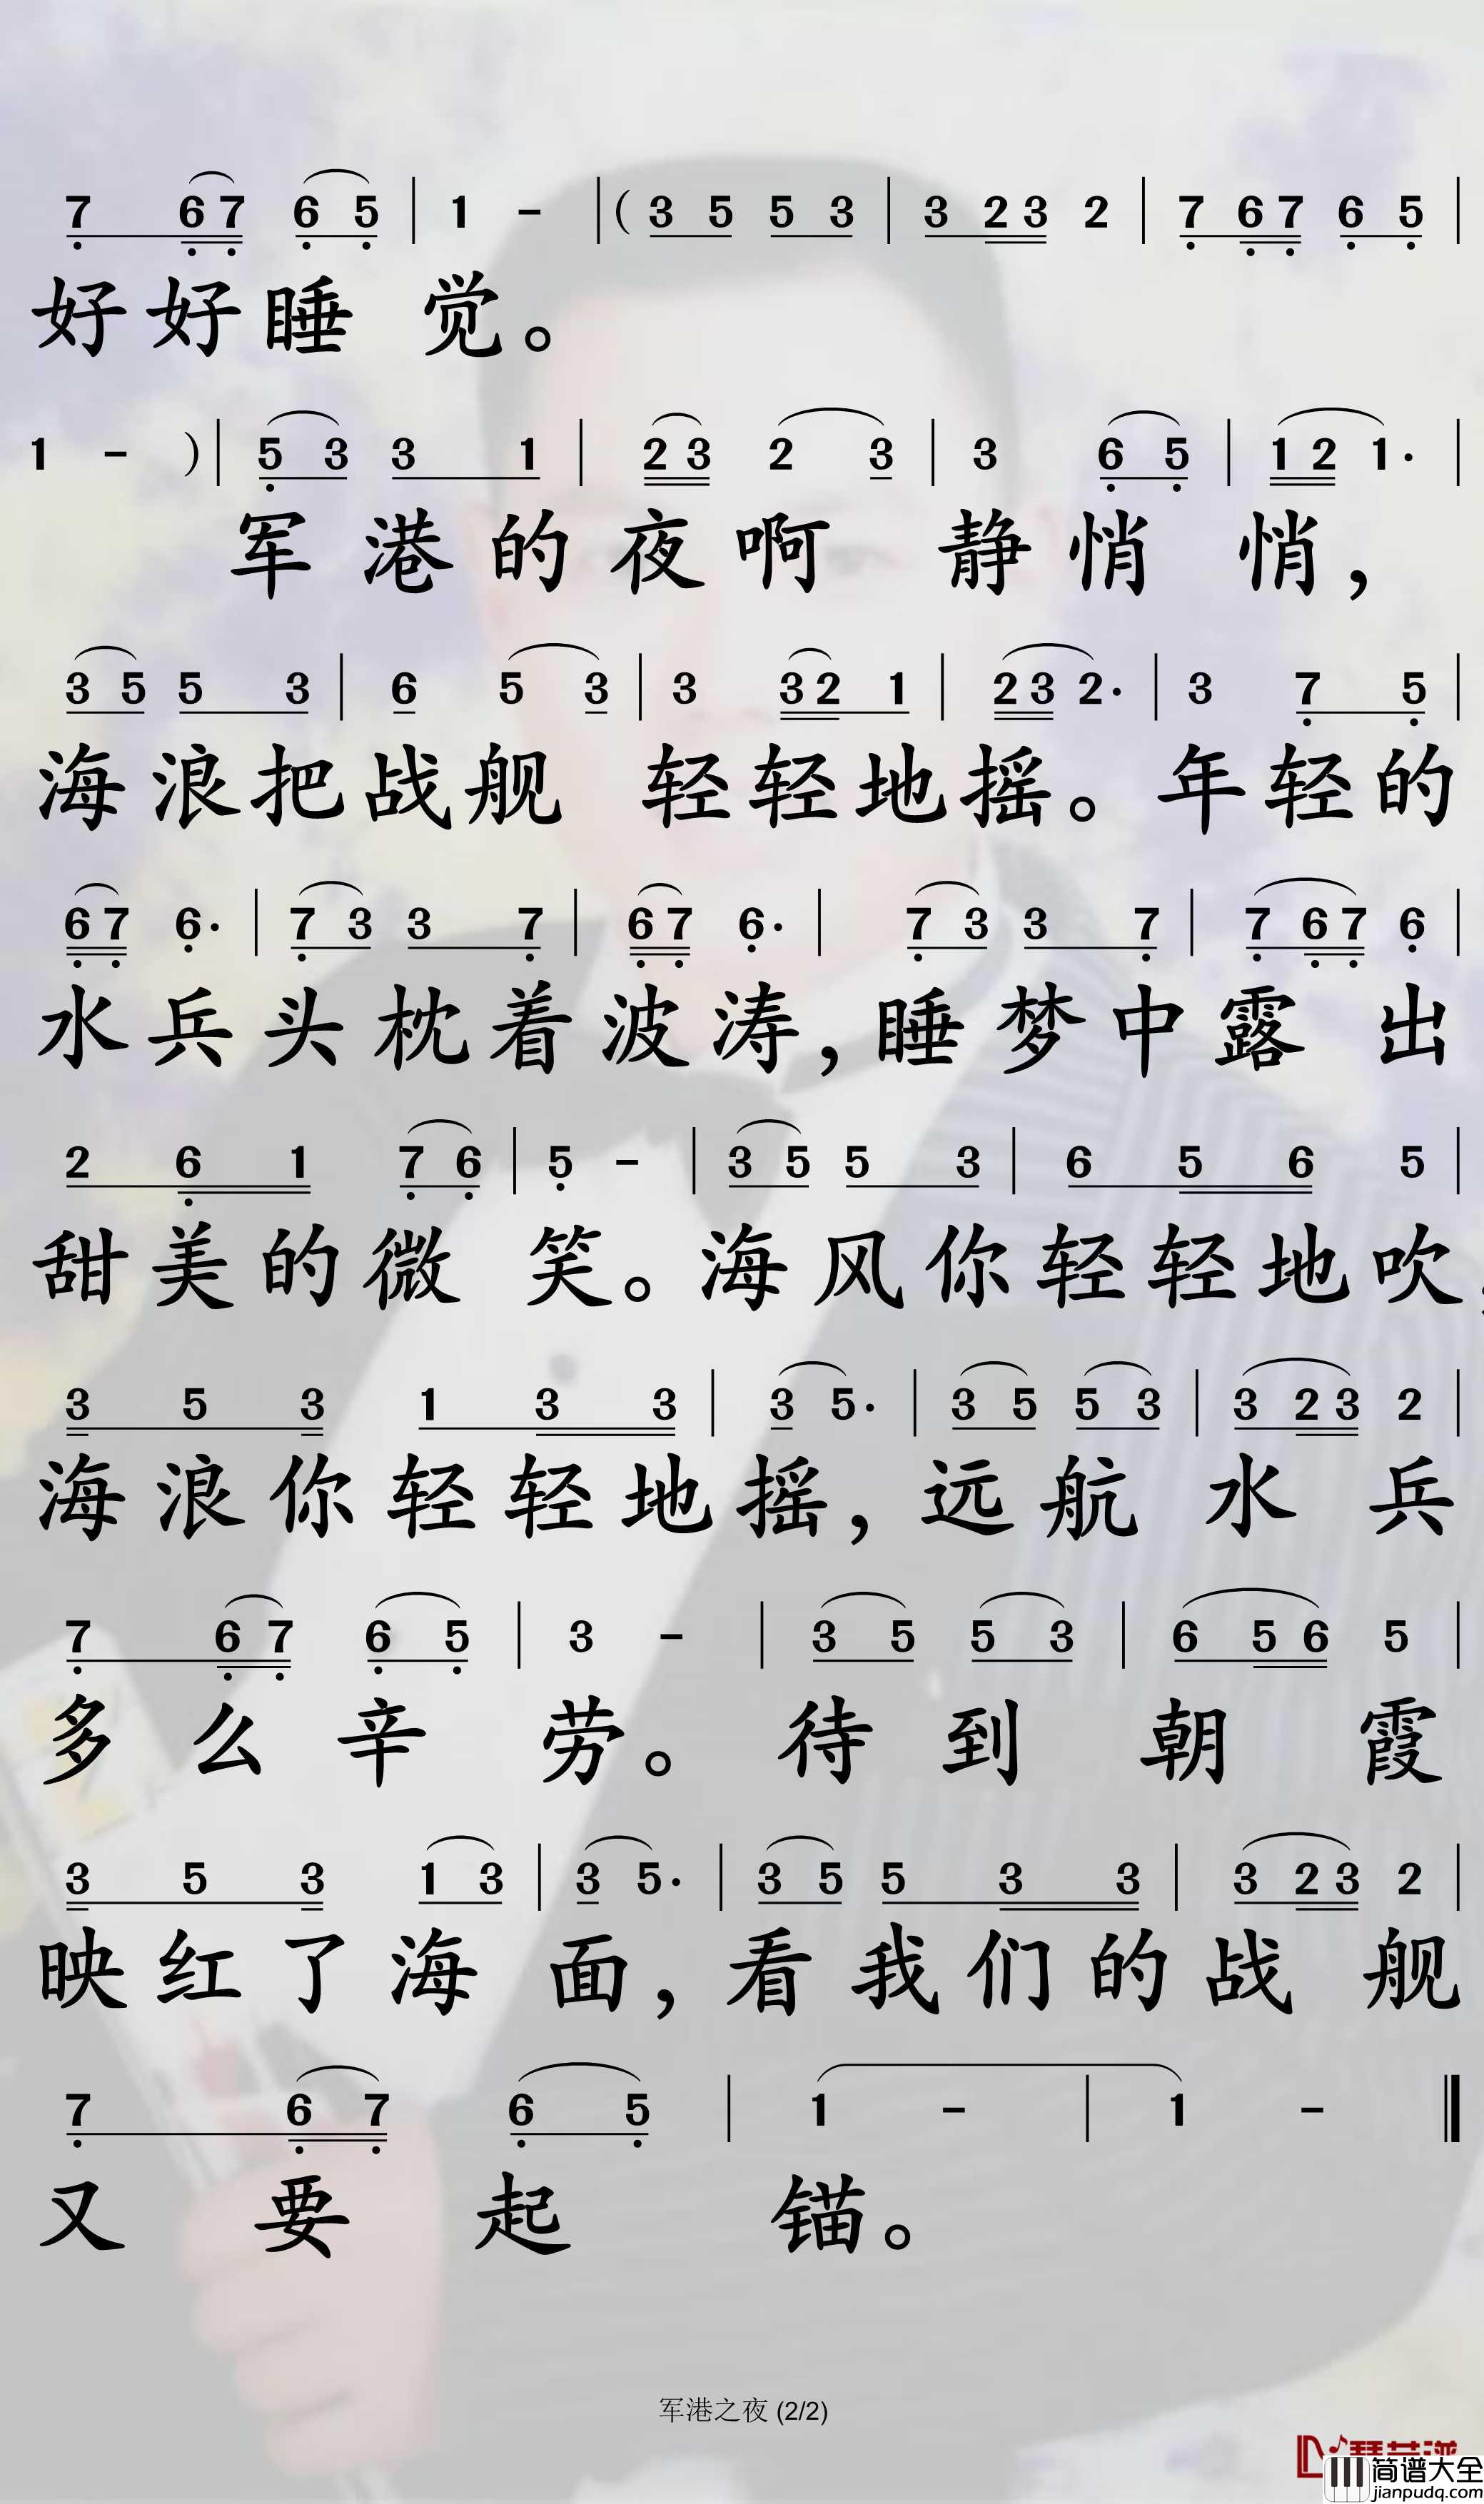 7 6 7 6 5 | 1 - | ( 3 5 5 3 | 3 2 3 2 | 7 6 7 6 5 |
好好睡 觉。
1 - ) | 5 3 3 1 | 2 3 2 3 | 3 6 5 | 1 2 1· |
军港的夜啊 静悄 悄，
3 5 5 3 | 6 5 3 | 3 3 2 1 | 2 3 2· | 3 7 5 |
海浪把战舰 轻轻地摇。年轻的
6 7 6· | 7 3 3 7 | 6 7 6· | 7 3 3 7 | 7 6 7 6 |
水兵头枕着波涛，睡梦中露 出
2 6 1 7 6 | 5 - | 3 5 5 3 | 6 5 6 5 |
甜美的微 笑。海风你轻轻地吹，
3 5 3 1 3 3 | 3 5· | 3 5 5 3 | 3 2 3 2 |
海浪你轻轻地摇，远航 水 兵
7 6 7 6 5 | 3 - | 3 5 5 3 | 6 5 6 5 |
多么辛 劳。 待到 朝 霞
3 5 3 1 3 | 3 5· | 3 5 5 3 3 | 3 2 3 2 |
映红了海 面，看我们的战 舰
7 6 7 6 5 | 1 - | 1 - ‖
又 要 起 锚。
军港之夜 (2/2)
简谱大全
jianpudq.com